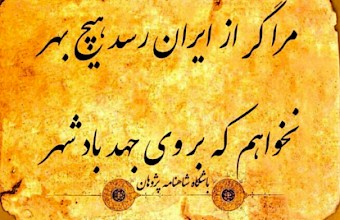 مرا گر از ایران رسد هیچ بهر
نخواهم که بروی جهد باد شهر
باشگاه شاهنامه پژوهان